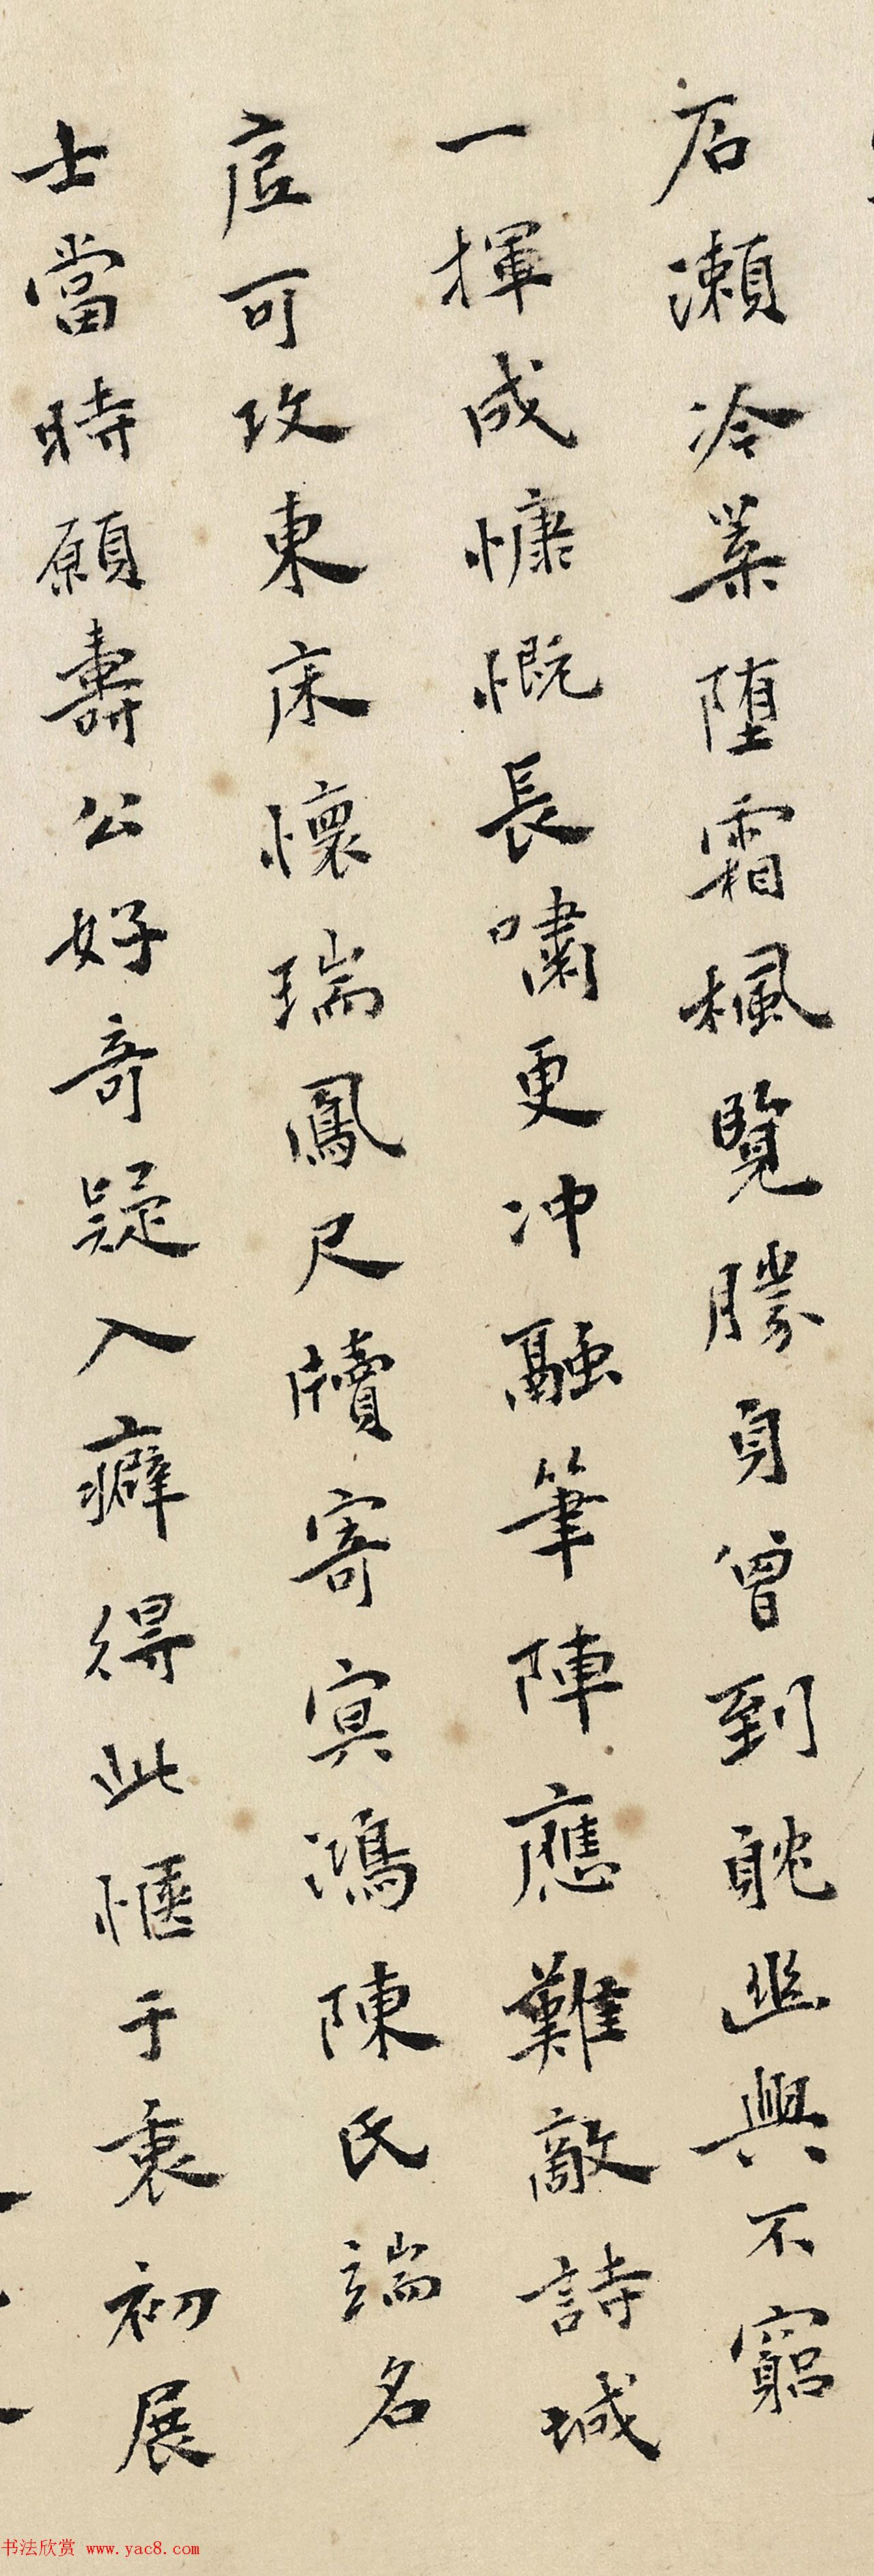 店瀨冷葉墮霜楓覽勝身曾到躭幽興不窮
一揮成慷慨長嘯更冲融筆陣應難敵詩城
詎可攻東床懷瑞鳳尺牘寄冥鴻陳氏端名
士當時願壽公好奇疑入癖得此愜于衷初展
书法欣赏 www.yac8.com